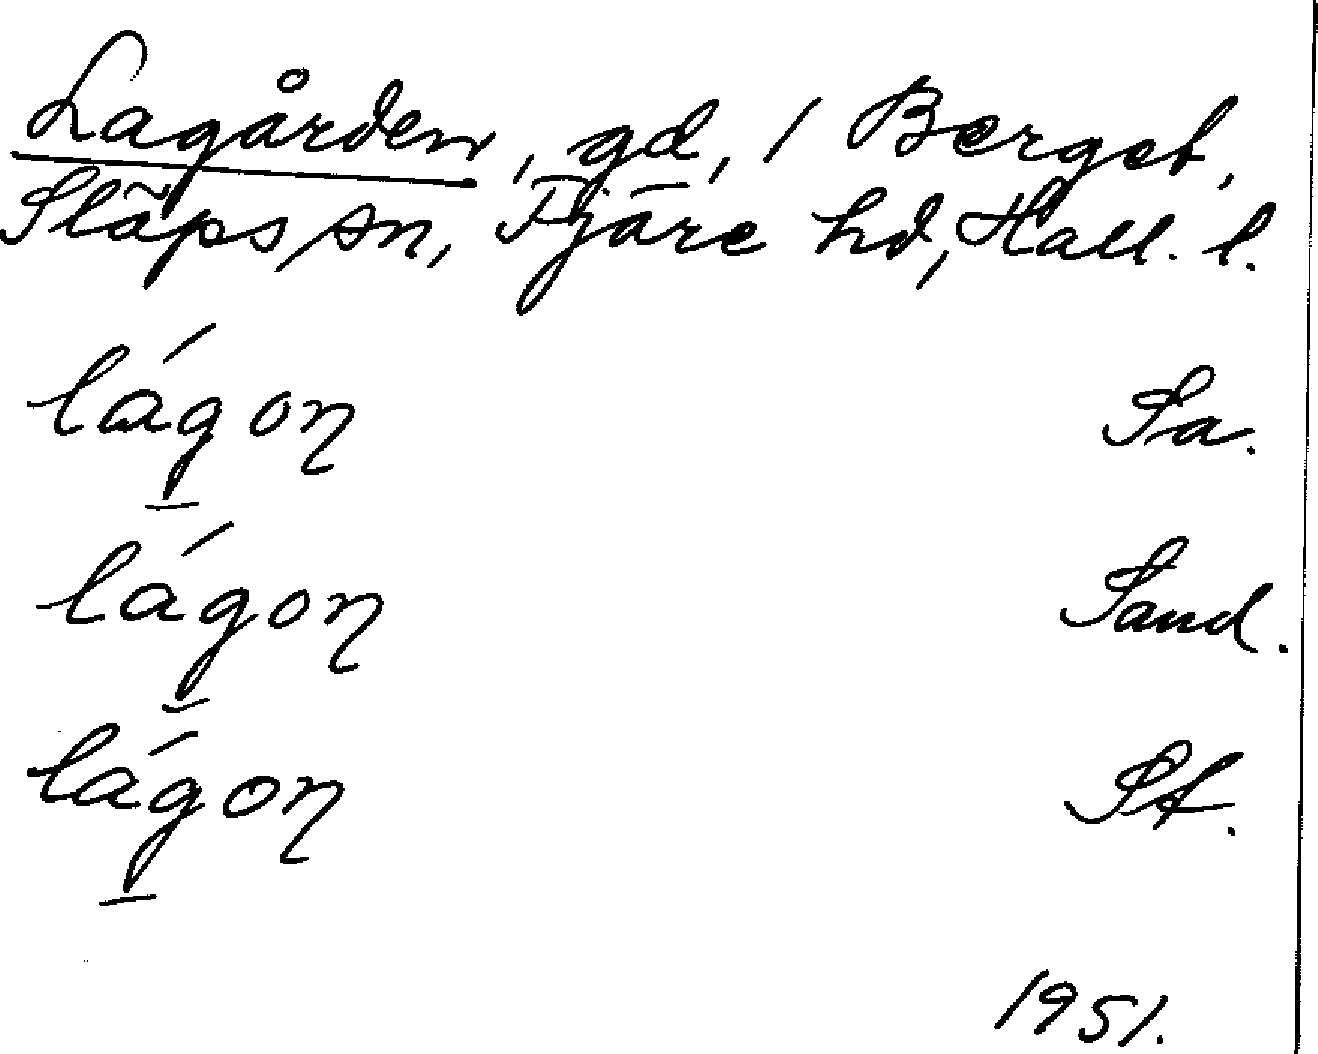 Lagården, gd, 1 Berget,
Släps sn, Fjäre hd, Hall. l.
lágoŋ Sa.
lágoŋ Sand.
lágoŋ St.
1951.